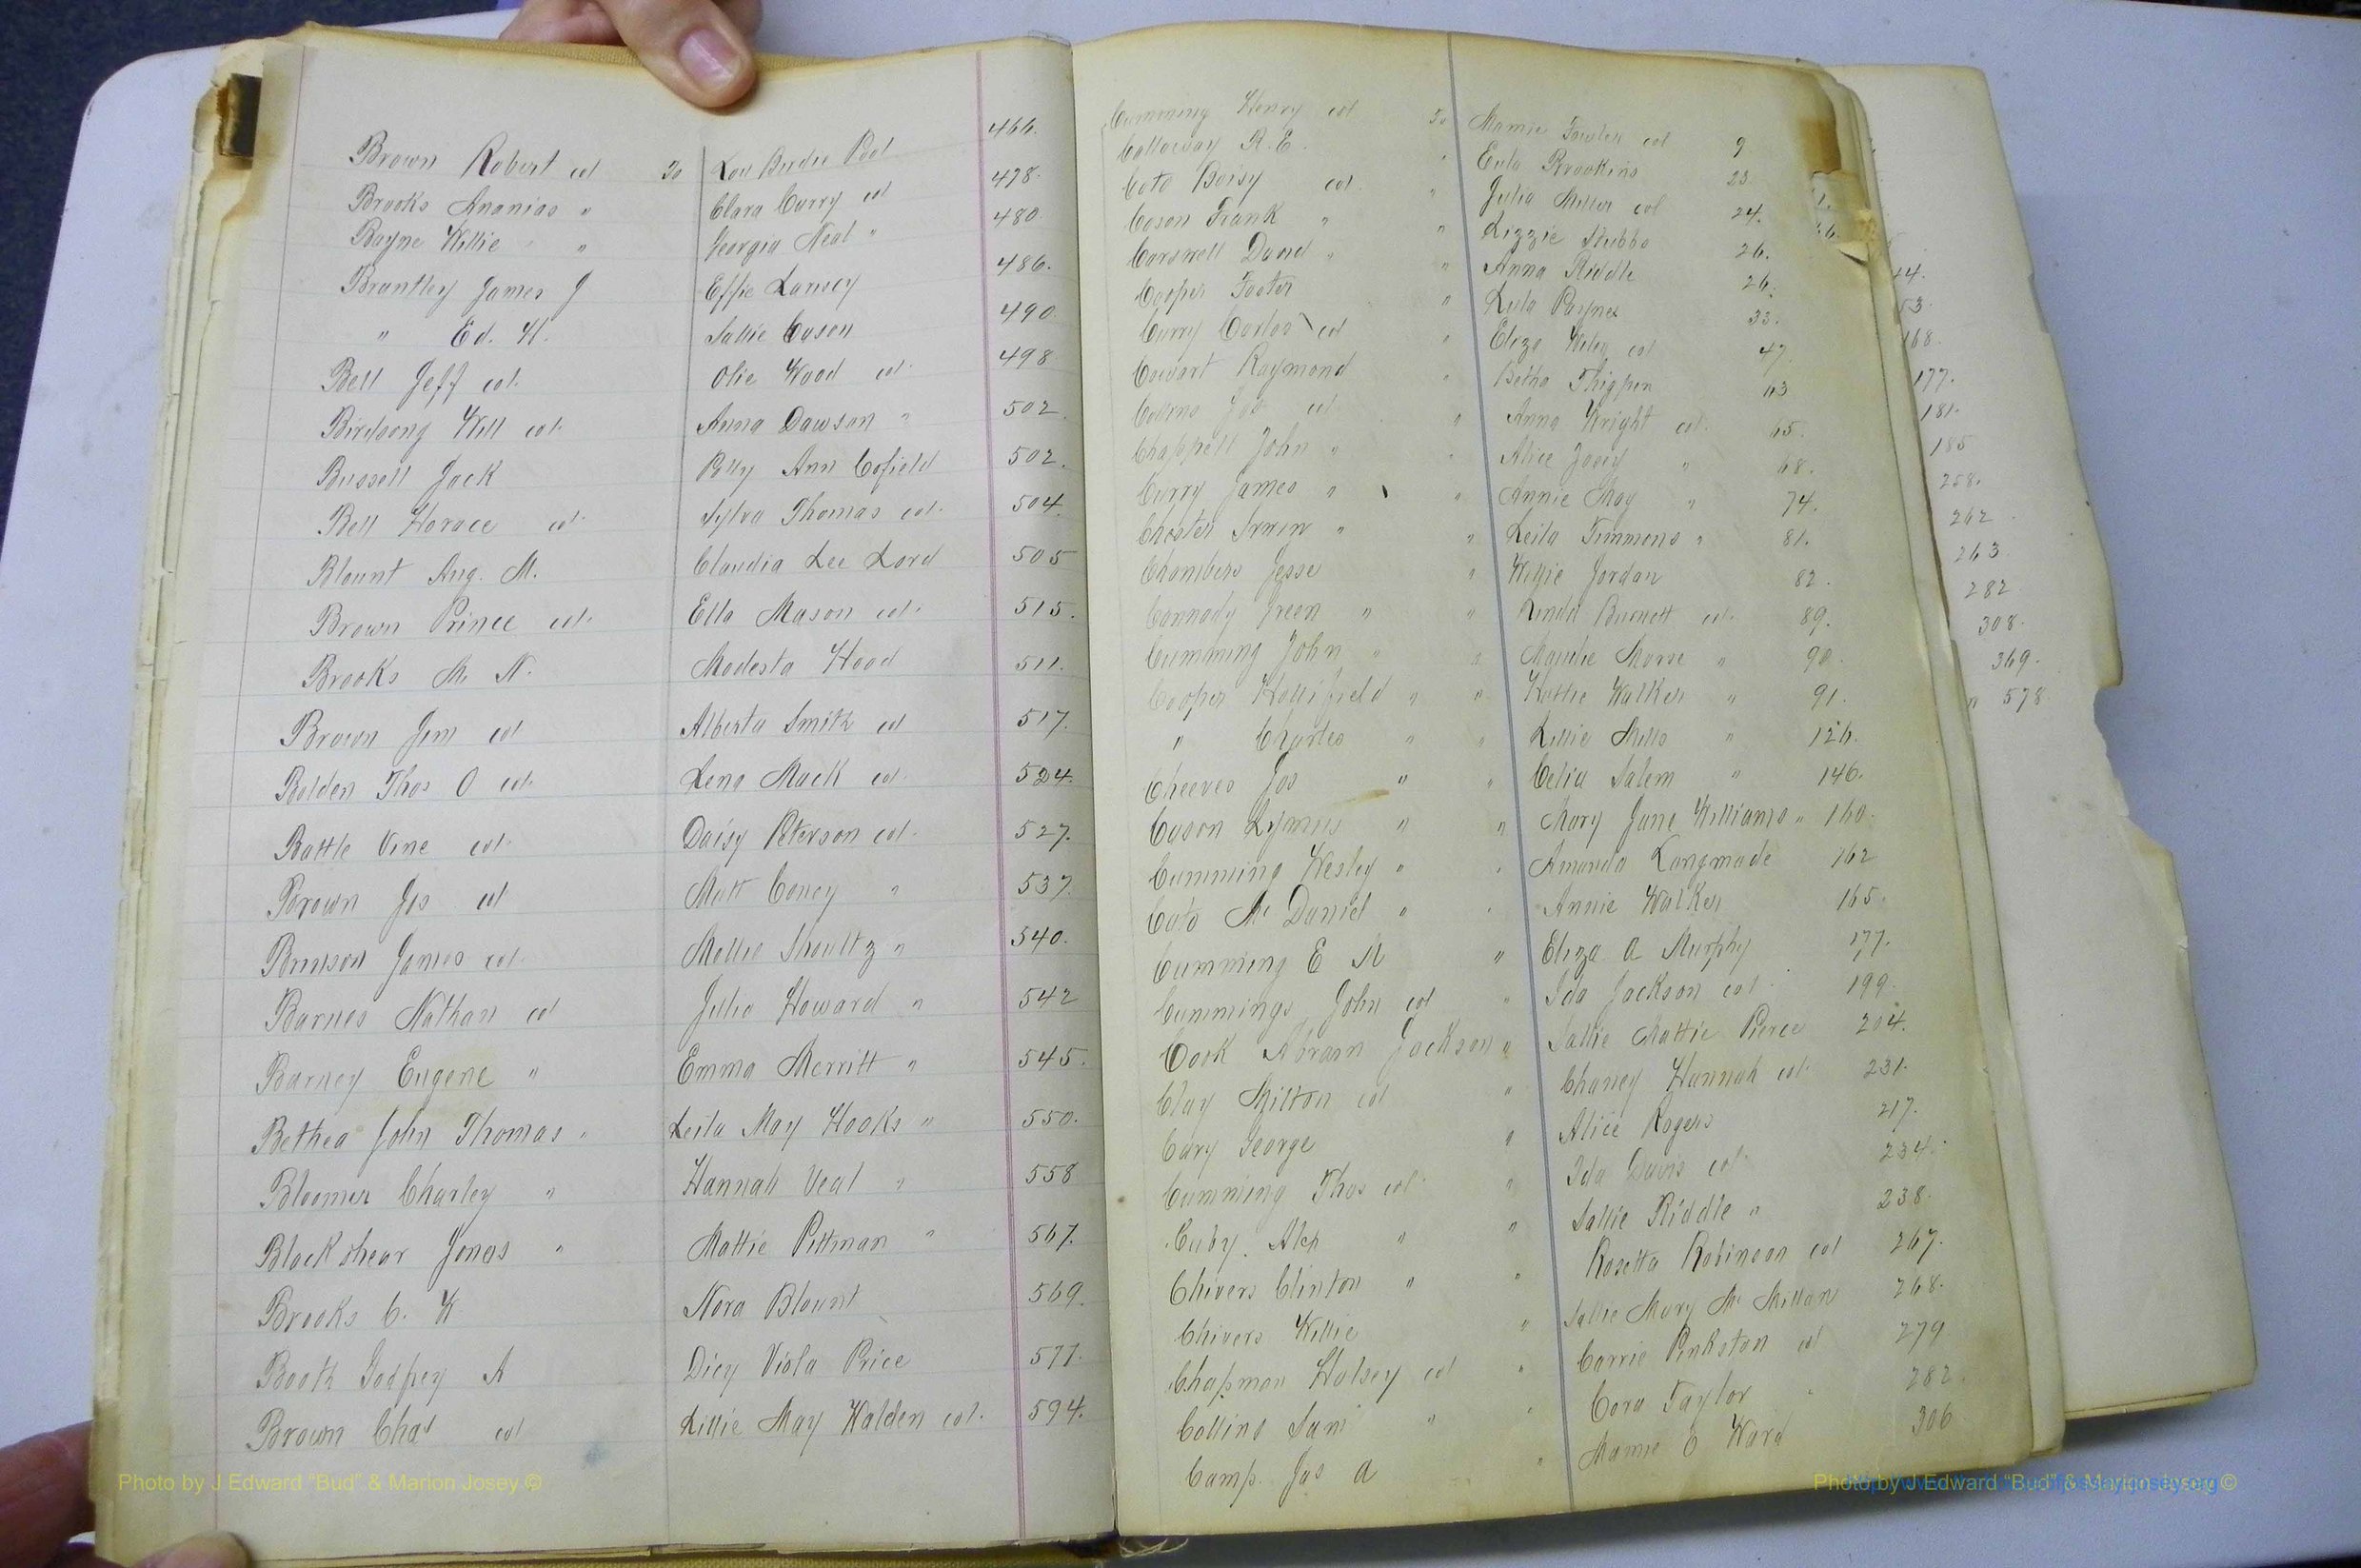 Brown Robert col To Lou Birdie Pool 466.
Brooks Ananias " Clara Curry col 478.
Bayne Willie " Georgia Neal " 480.
Brantley James J Effie Lansey 486.
" Ed. H. Sallie Cason 490.
Bell Jeff col. Olie Wood col. 498
Birdsong Will col. Anna Dawson " 502.
Bussell Jack Polly Ann Cofield 502.
Bell Horace col. Sylva Thomas col. 504.
Blount Aug. M. Claudia Lee Lord 505
Brown Prince col. Ella Mason col. 515.
Brooks M. N. Modesta Hood 511.
Brown Jim col Alberta Smith col 517.
Bolden Thos O col. Lena Mack col. 524.
Battle Vine col. Daisy Peterson col. 527.
Brown Jos col Matt Coney " 537.
Brunson James col. Mollie Shoultz " 540.
Barnes Nathan col Julia Howard " 542
Barney Eugene " Emma Merritt " 545.
Bethea John Thomas " Leila May Hooks " 550.
Bloomer Charley " Hannah Veal " 558
Blackshear Jonas " Mattie Pittman " 567.
Brooks C. W Nora Blount 569.
Booth Godfrey A Dicy Viola Price 577.
Brown Chas col Lillie May Walden col. 594.
Cumming Henry col To Mamie Fowler col 9.
Calloway R. E. " Eula Brookins 23.
Cato Daisy col. " Julia Miller col 24.
Cason Frank " " Lizzie Stubbs 26.
Carswell David " " Anna Riddle 26.
Cooper Foster " Lula Payne 33.
Curry Carlos col " Eliza Wiley col 47.
Cowart Raymond " Betha Thigpen 63
Collins Jos col. " Anna Wright col. 65.
Chappell John " " Alice Josey " 68.
Curry James " " Annie May " 74.
Chester Irwin " " Leila Timmons " 81.
Chambers Jesse " Willie Jordan 82.
Cannady Green " " Linda Burnett col. 89.
Cumming John " " Maudie Morse " 90.
Cooper Hollifield " " Hattie Walker " 91.
" Charles " " Lillie Mills " 126.
Cheeves Jos " " Celia Salem " 146.
Cason Lymus " " Mary Jane Williams " 160.
Cumming Wesley " " Amanda Longmade 162
Cato Mc Daniel " " Annie Walker 165.
Cumming E M " Eliza A Murphy 177.
Cummings John col " Ida Jackson col. 199.
Cook Abram Jackson " Sallie Mattie Pierce 204.
Clay Milton col " Chaney Hannah col. 231.
Cary George " Alice Rogers 217.
Cumming Thos col. " Ida Davis col. 234.
Cuby. Alex " " Sallie Riddle " 238.
Chivers Clinton " " Rosetta Robinson col 267.
Chivers Willie " Sallie Mary Mc Millan 268.
Chapman Halsey col " Carrie Pinkston col 279
Collins Sam " " Cora Taylor " 282.
Camp. Jas A " Mamie E Ward 306
53.
168.
177.
181.
185
258.
262
263.
282
308.
369.
" 578.
Photo by J Edward “Bud” & Marion Josey ©
Photo by J Edward “Bud” & Marion Josey ©